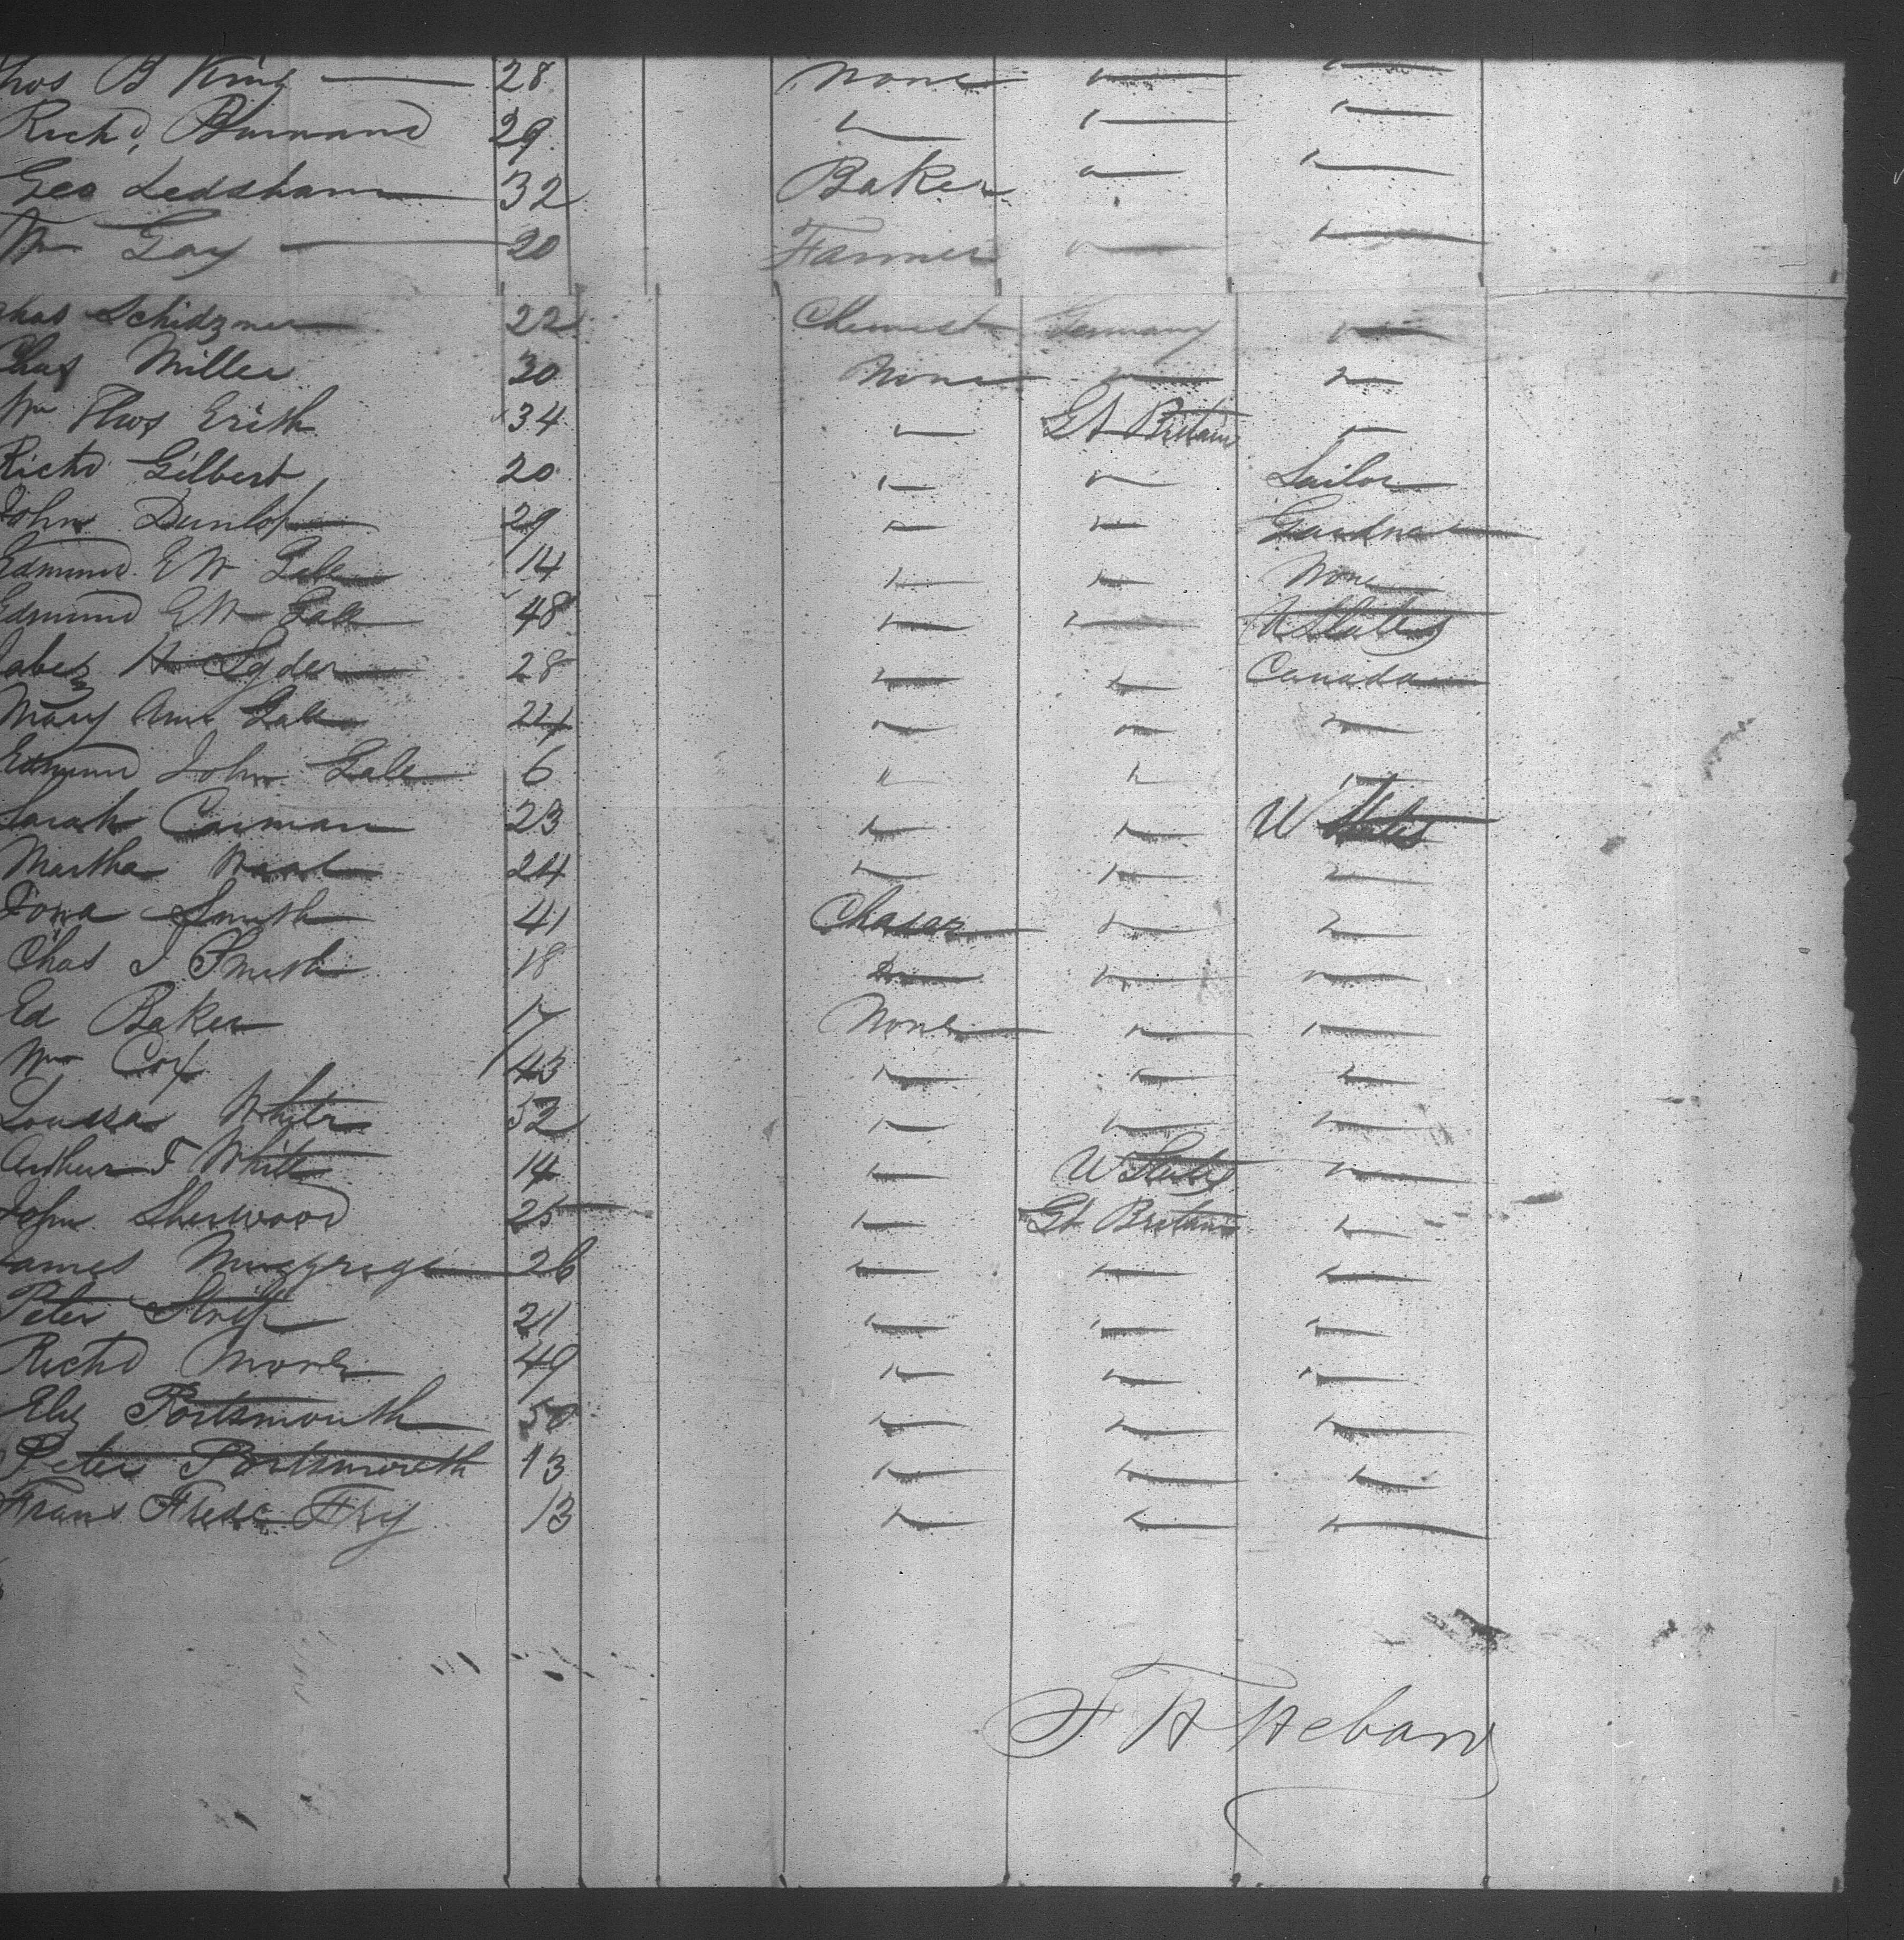 Thos B King 28 None " "
Richd Burnand 29 " " "
Geo Ledsham 32 Baker " "
Wm Gay 20 Farmer " "
Chas Schidzner 22 Chemist Germany "
Chas Miller 30 None " "
Wm Thos Erith 34 " Gt Britain "
Richd Gilbert 20 " " Sailor
John Dunlop 29 " " Gardner
Edmund E W Gale 14 " " None
Edmund E W Gale 48 " " U States
Jabez H 28 " " Canada
Mary Ann Gale 24 " " "
Edmund John Gale 6 " " "
Sarah Carman 23 " " U States
Martha 24 " " "
Smith 41 " "
Chas J Smith 18 " " "
Ed Baker 17 None " "
Wm Cox 43 " " "
Louisa White 52 " " "
Arthur F White 14 " U States "
John Sherwood 25 " Gt Britain "
James Muggrige 26 " " "
Peter 21 " " "
Richd 49 " " "
Eliz Portsmouth 50 " " "
Peter Portsmouth 13 " " "
Frans Fredc Fry 13 " " "
F H Hebard